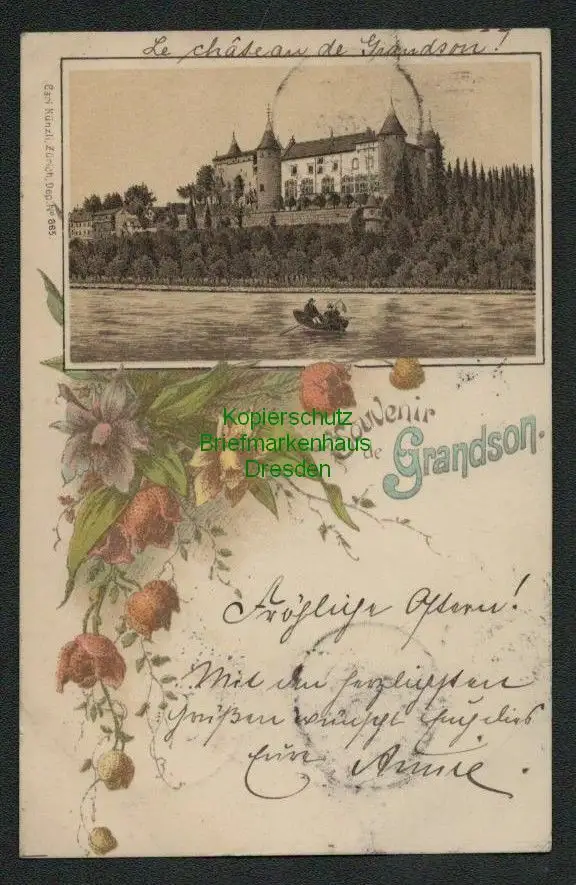 Le château de Grandson!
Carl Künzli, Zürich, Dep. No 865.
Souvenir
de Grandson.
Kopierschutz
Briefmarkenhaus
Dresden
Fröhliche Ostern!
Mit den herzlichsten
Grüßen wünscht Euch dies
Eure Annie.